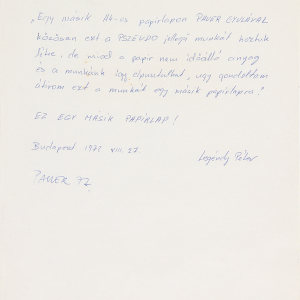 „Egy másik A4-es papirlapon PAUER GYULÁVAL
közösen ezt a PSZEUDO jellegű munkát hoztuk
létre, de mivel a papir nem időálló anyag
és a munkánk így elpusztulhat, úgy gondoltam
átirom ezt a munkát egy másik papirlapra!
EZ EGY MÁSIK PAPIRLAP!
Budapest 1972 VIII 27.
Legéndy Péter
PAUER 72